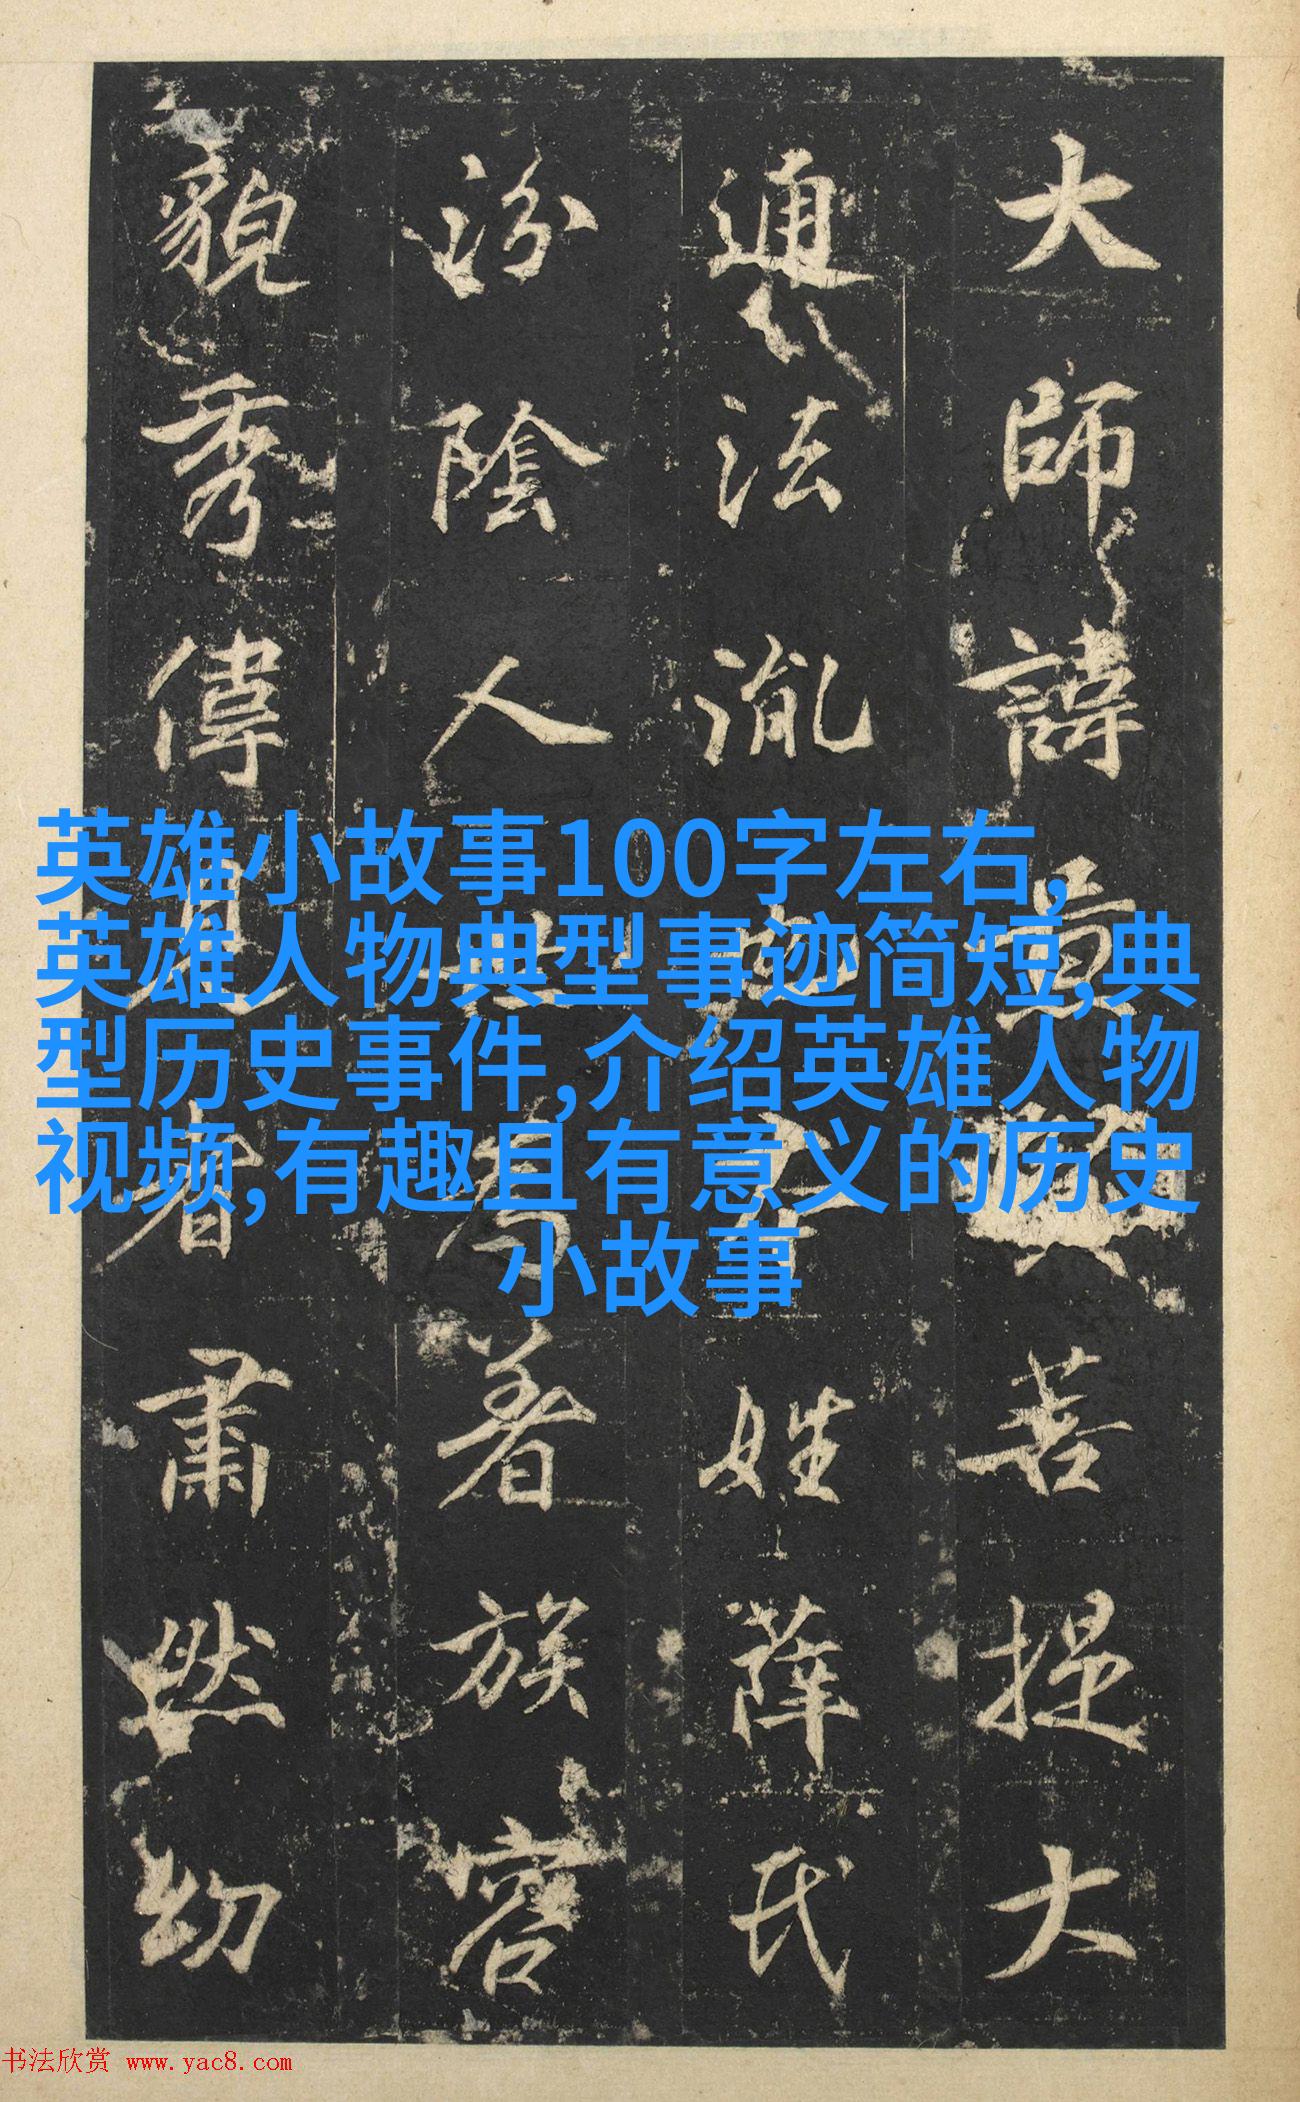 大師諱菩提大
通法姓薛氏
汾陰人世為著族容
貌秀偉見者肅然幼
英雄小故事100字左右,
英雄人物典型事迹简短,典
型历史事件,介绍英雄人物
视频,有趣且有意义的历史
小故事
书法欣赏 www.yac8.com